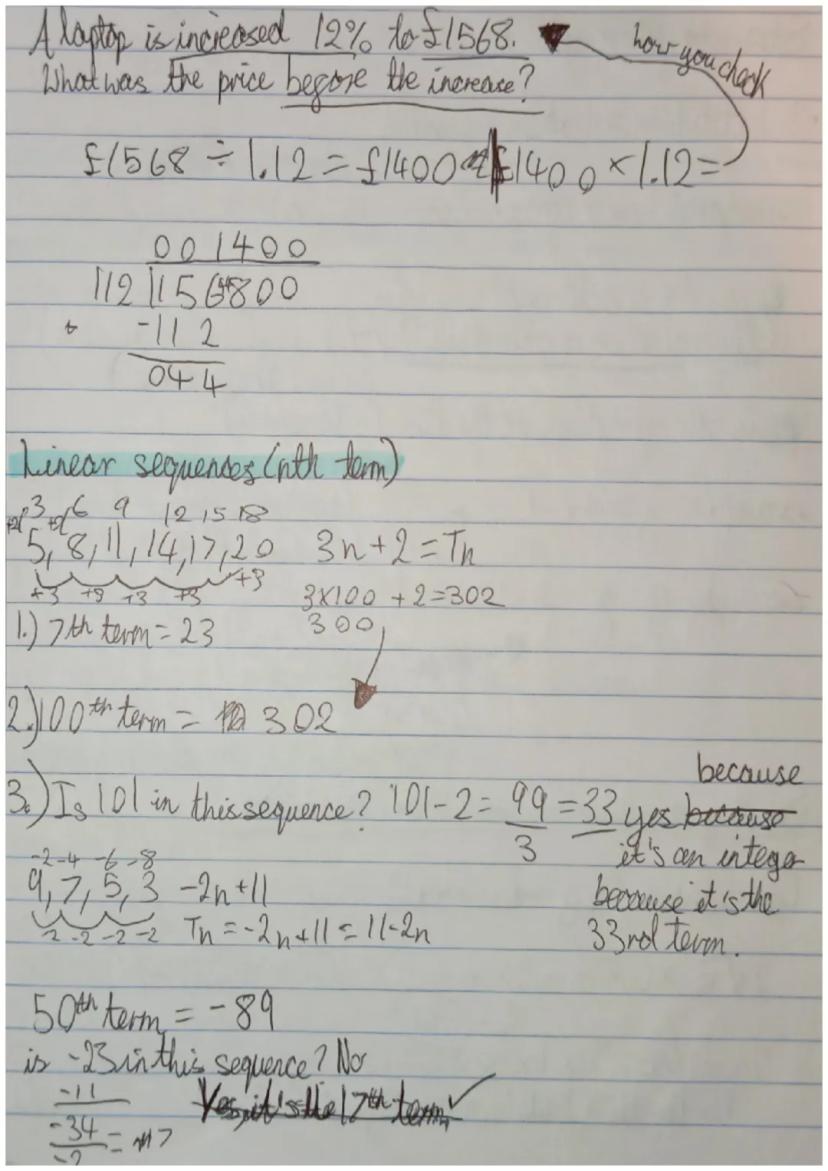 A laptop is increased 12% to £1568.
how you check
What was the price before the increase?
£1568 ÷ 1.12 = £1400 £1400 × 1.12 =
001400
112 156800
-112
044
Linear sequences (nth term)
3 6 9 12 15 18
5, 8, 11, 14, 17, 20 3n+2 = Tn
+3 +3 +3 +3 +3
3×100 + 2 = 302
300
1.) 7th term = 23
2.) 100th term = 302
3.) Is 101 in this sequence? 101-2 = 99/3 = 33 yes because because
it's an integer
because it's the
33rd term.
-2 -4 -6 -8
9, 7, 5, 3 -2n+11
-2 -2 -2 -2 Tn = -2n+11 = 11-2n
50th term = -89
is -23 in this sequence? No
-11
Yes, it's the 17th term ✓
-34/-2 = 17